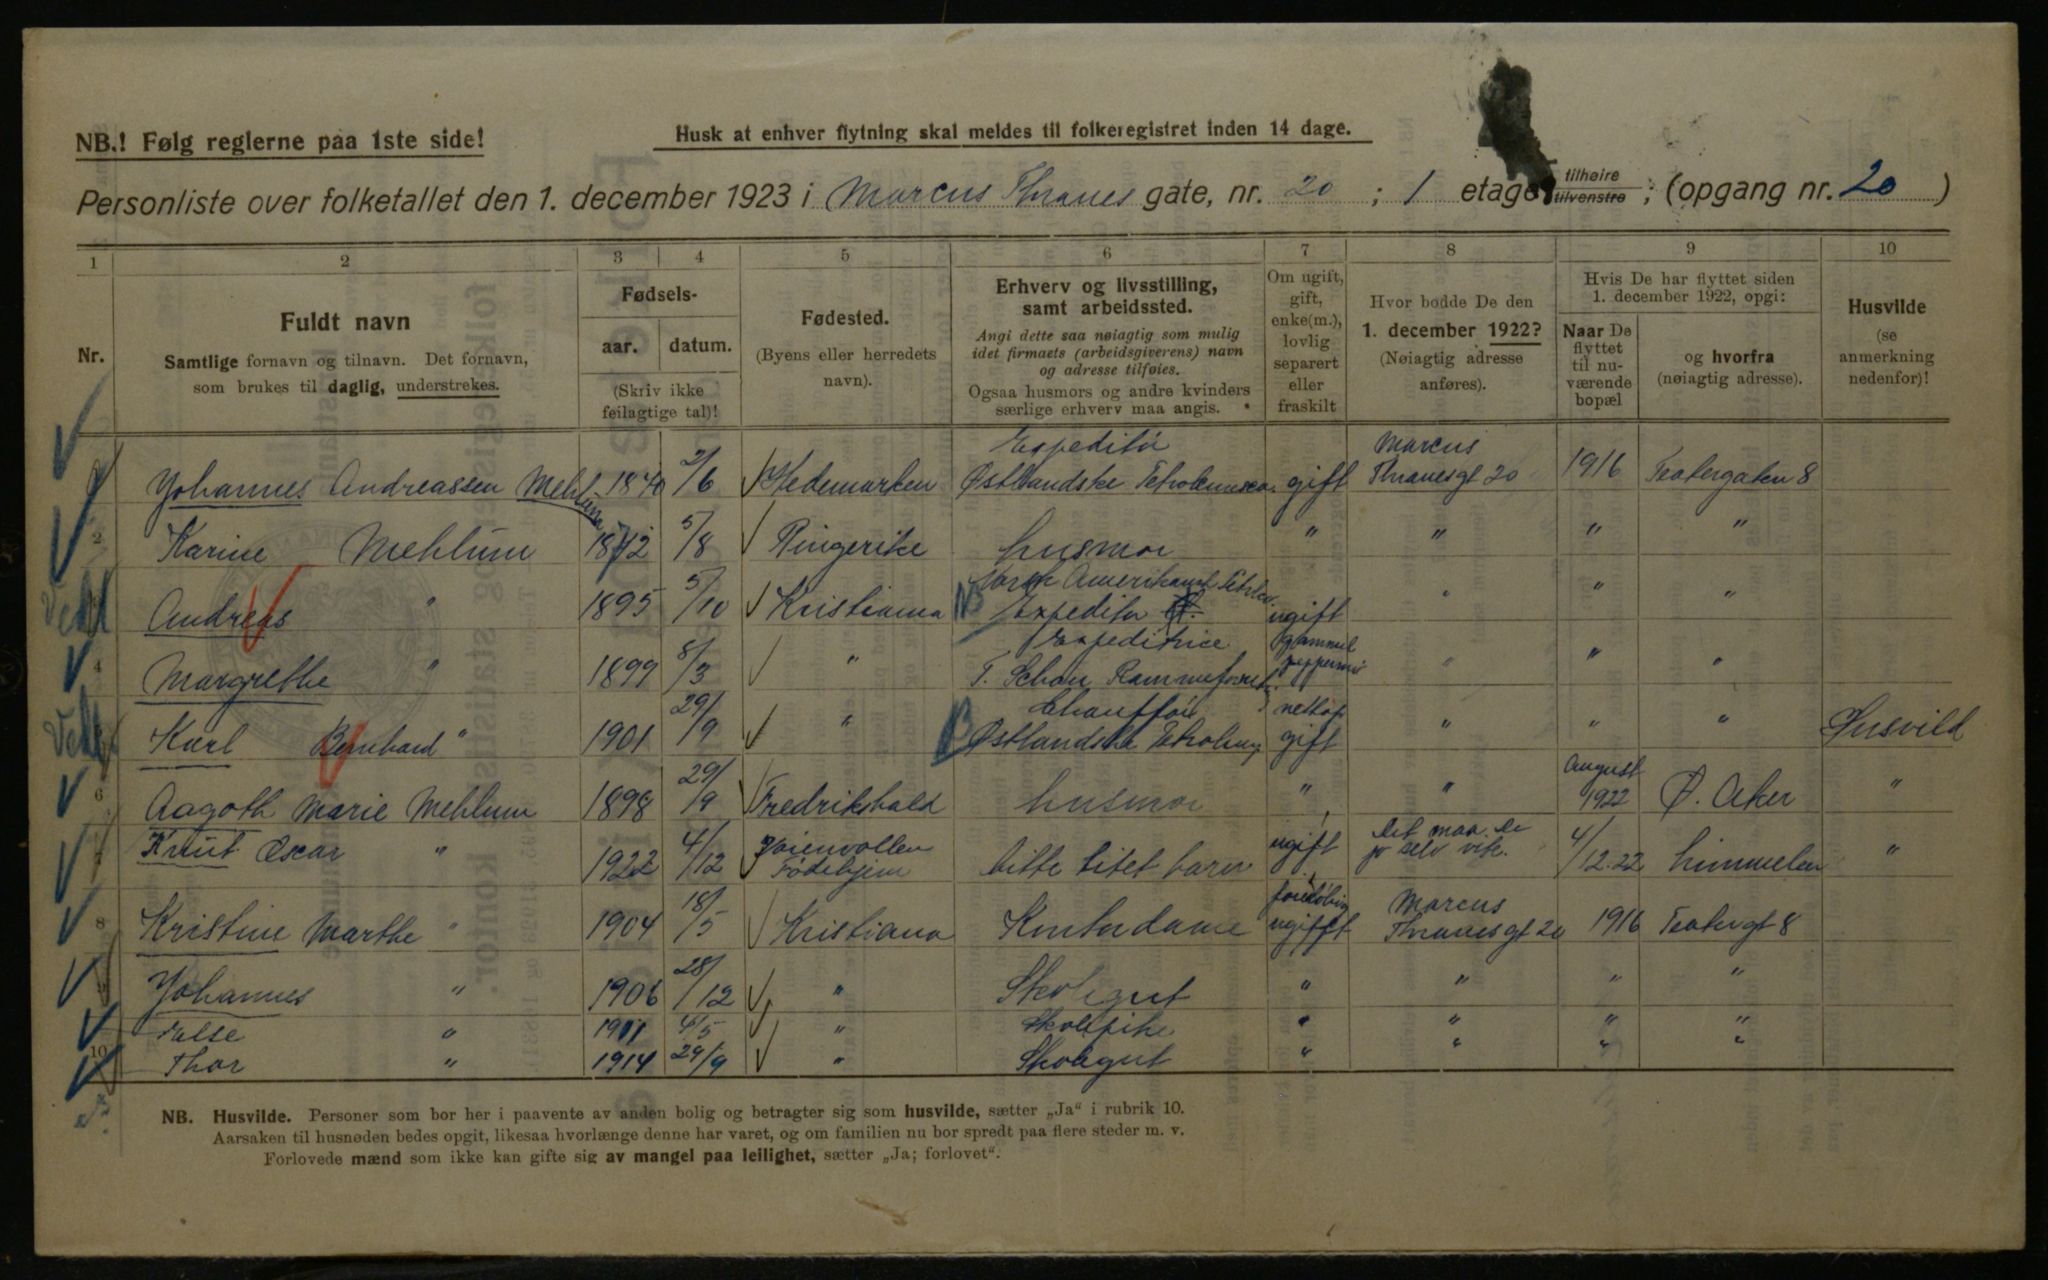 NB.! Følg reglerne paa 1ste side!
Husk at enhver flytning skal meldes til folkeregistret inden 14 dage.
Personliste over folketallet den 1. december 1923 i Marcus Thranes gate, nr. 20 ; 1 etage tilhøire tilvenstre ; (opgang nr. 20 )
1 2 3 4 5 6 7 8 9 10
Nr.
Fuldt navn
Samtlige fornavn og tilnavn. Det fornavn,
som brukes til daglig, understrekes.
Fødsels-
aar. datum.
(Skriv ikke
feilagtige tal)!
Fødested.
(Byens eller herredets
navn).
Erhverv og livsstilling,
samt arbeidssted.
Angi dette saa nøiagtig som mulig
idet firmaets (arbeidsgiverens) navn
og adresse tilføies.
Ogsaa husmors og andre kvinders
særlige erhverv maa angis.
Om ugift,
gift,
enke(m.),
lovlig
separert
eller
fraskilt
Hvor bodde De den
1. december 1922?
(Nøiagtig adresse
anføres).
Hvis De har flyttet siden
1. december 1922, opgi:
Naar De
flyttet
til nu-
værende
bopæl
og hvorfra
(nøiagtig adresse).
Husvilde
(se
anmerkning
nedenfor)!
1 Yohannes Andreassen Mehlum 1870 2/6 Hedemarken Expeditør Østlandske gift Marcus Thranesgt 20 1916 Teatergaten 8
2 Karine Mehlum 1872 5/8 Ringerike husmor " " " "
Andreas " 1895 5/10 Kristiania Norsk Amerikansk Expeditør ugift " " "
4 Margrethe " 1899 8/3 " Expeditrice T. Schou gammel " " "
Karl Bernhard " 1901 29/9 " Chauffør Østlandske nettop gift " " " Husvild
6 Aagoth Marie Mehlum 1898 29/9 Fredrikshald husmor " " August 1922 Ø. Aker "
7 Knut Oscar " 1922 4/12 Fødehjem bitte litet barn ugift det maa de jo selv vite. 4/12.22 himmelen "
8 Kristine Marthe " 1904 18/5 Kristiana Kontordame foreløbig ugift Marcus Thranesgt 20 1916 Teatergt 8
Yohannes " 1906 28/12 " Skolegut " " " "
" 1911 4/5 " Skolepike " " " "
10 Thor " 1914 29/9 " Skolegut " " " "
NB. Husvilde. Personer som bor her i paavente av anden bolig og betragter sig som husvilde, sætter „Ja“ i rubrik 10.
Aarsaken til husnøden bedes opgit, likesaa hvorlænge denne har varet, og om familien nu bor spredt paa flere steder m. v.
Forlovede mænd som ikke kan gifte sig av mangel paa leilighet, sætter „Ja; forlovet“.